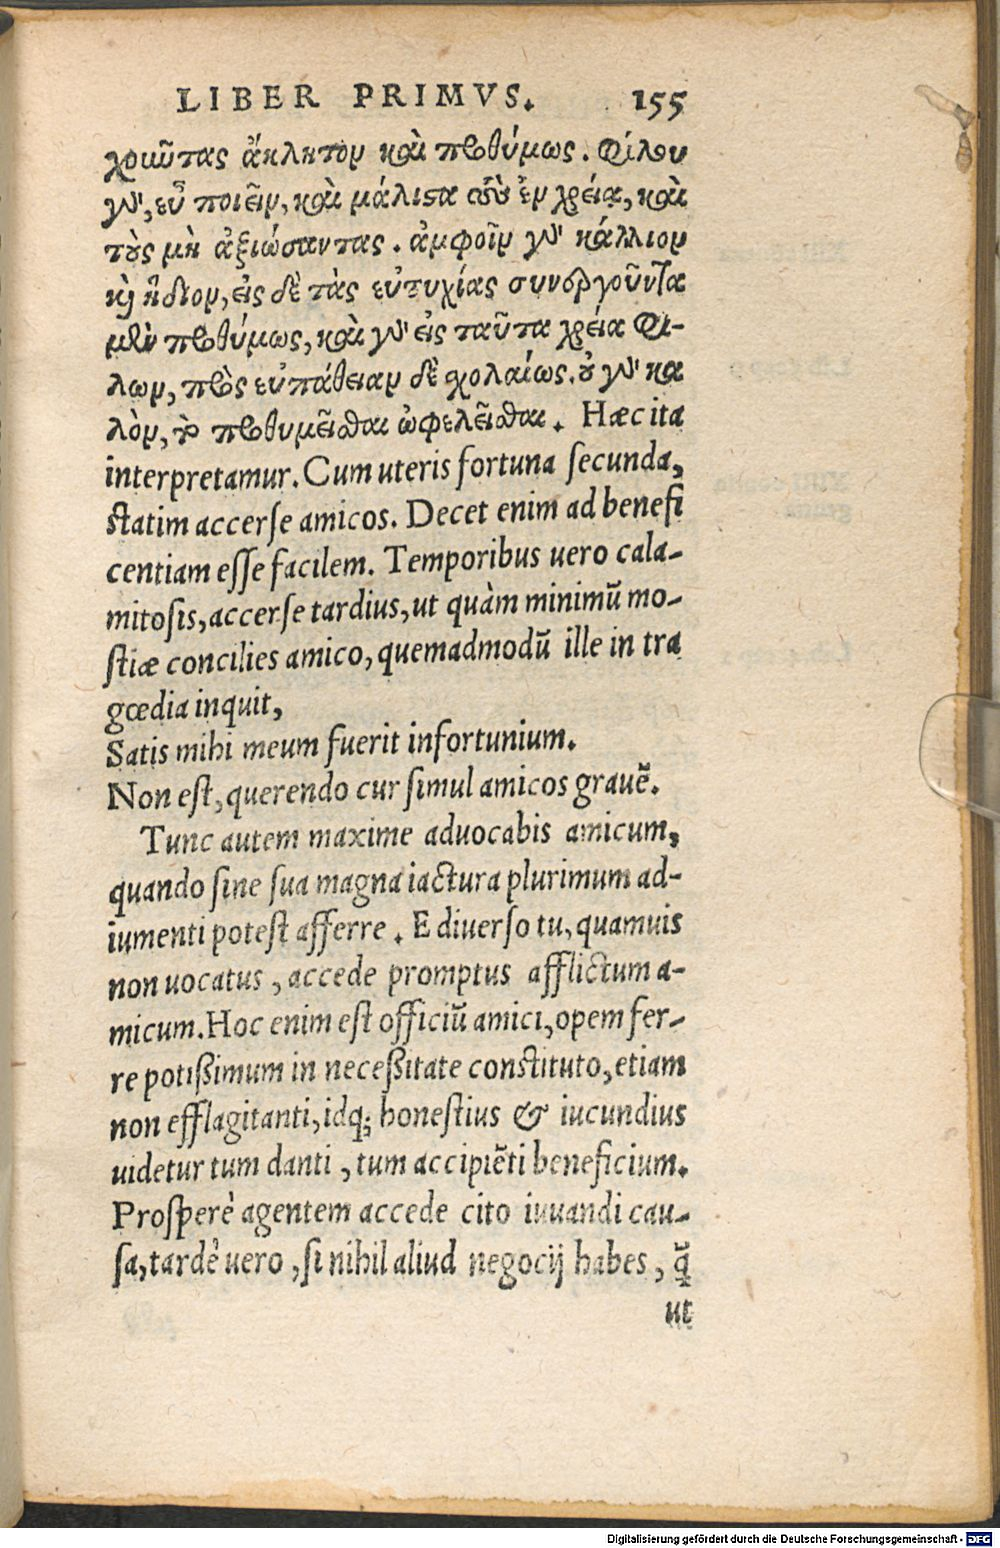 LIBER PRIMVS. 155
χοιῦτας ἄκλητον καὶ προθύμως. Φίλου
γδ, εὖ ποιεῖν, καὶ μάλιστα τοὺ ἐν χρείᾳ, καὶ
τοὺς μὴ ἀξιώσαντας. ἀμφοῖν γδ κάλλιον
κỳ ἥδιον, εἰς δὲ τὰς εὐτυχίας συνεργοῦντα
μὲν προθύμως, καὶ γδ εἰς ταῦτα χρεία Φί-
λων, πρὸς εὐπάθειαν δὲ σχολαίως. ȣ γδ κα
λὸν, τὸ προθυμεῖσθαι ὠφελεῖσθαι. Hæc ita
interpretamur. Cum uteris fortuna secunda,
statim accerse amicos. Decet enim ad benefi
centiam esse facilem. Temporibus uero cala-
mitosis, accerse tardius, ut quàm minimũ mo-
stiæ concilies amico, quemadmodũ ille in tra
gœdia inquit,
Satis mihi meum fuerit infortunium.
Non est, querendo cur simul amicos grauẽ.
Tunc autem maxime aduocabis amicum,
quando sine sua magna iactura plurimum ad-
iumenti potest afferre. E diuerso tu, quamuis
non uocatus, accede promptus afflictum a-
micum. Hoc enim est officiũ amici, opem fer-
re potißimum in neceßitate constituto, etiam
non efflagitanti, idq; honestius & iucundius
uidetur tum danti, tum accipiẽti beneficium.
Prosperè agentem accede cito iuuandi cau-
sa, tardè uero, si nihil aliud negocij habes, q̃
ut
Digitalisierung gefördert durch die Deutsche Forschungsgemeinschaft - DFG